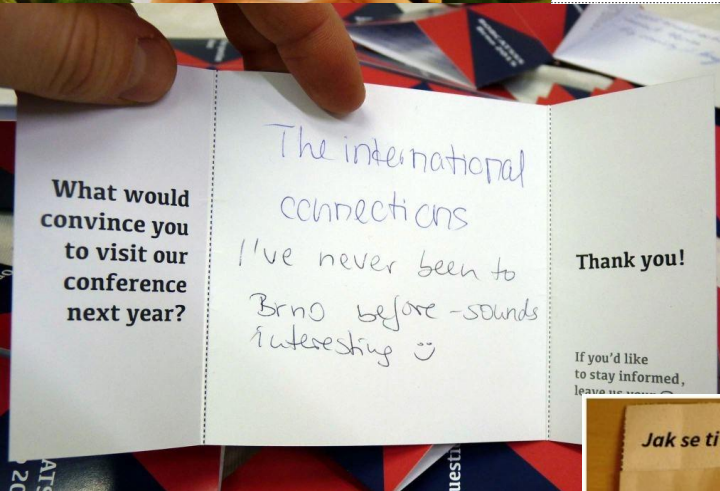 What would
convince you
to visit our
conference
next year?
The international
connections
I've never been to
Brno before - sounds
interesting ☺
Thank you!
If you'd like
to stay informed,
leave us your
Jak se ti